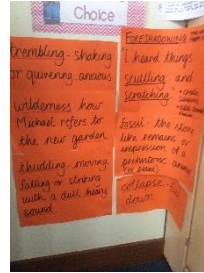 Choice
trembling - shaking
or quivering, anxious
wilderness how
Michael refers to
the new garden
thudding - moving
falling or striking
with a dull heavy
sound
FORESHADOWING
I heard things
scuttling and
scratching
fossil - the stone
like remains or
impression of a
prehistoric animal
collapse -
down